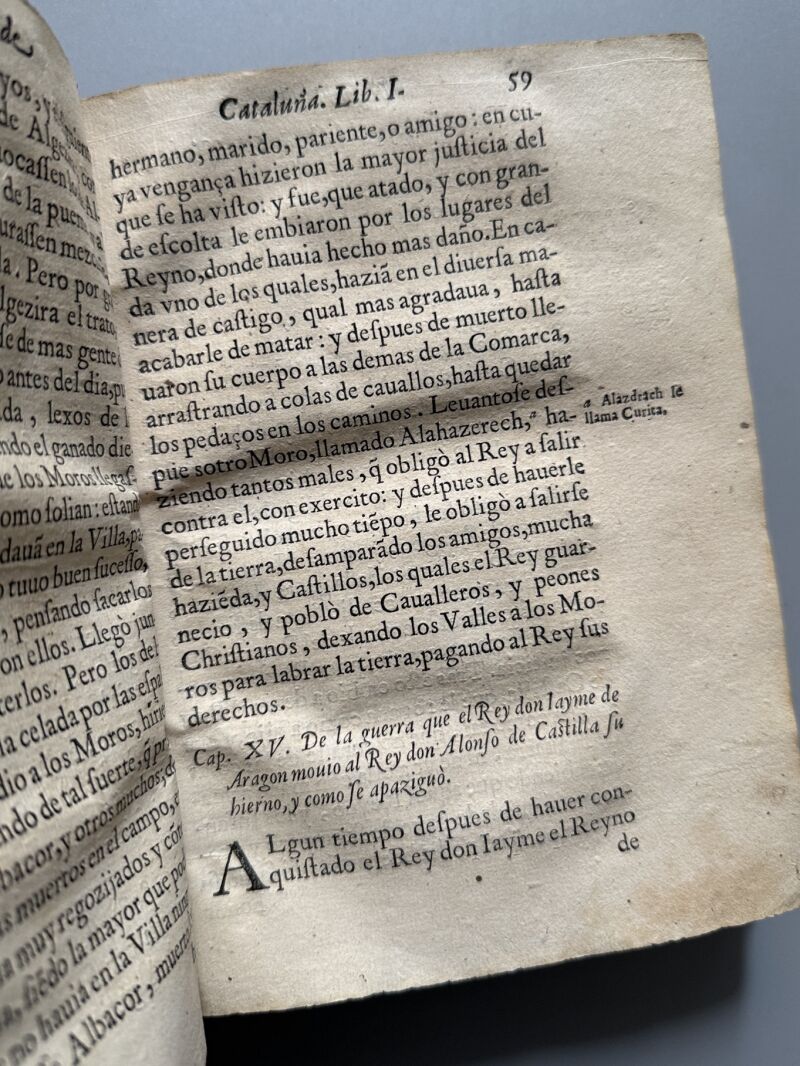 de
yos,
de Alge
con
de la puen
uraſſen mezc
la. Pero por
lgezira el trato
ſe de mas gente
antes del dia,
da, lexos de l
ndo el ganado die
los Moros llegaſ-
omo ſolian: eſtand
dauã en la Villa,
tuuo buen ſuceſſo,
, penſando ſacarlos
on ellos. Llegò jun
terlos. Pero los del
la celada por las eſpa
dio a los Moros, hirie
ndo de tal ſuerte, q̃
bacor, y otros muchos; de
muertos en el campo,
muy regozijados y con
ſiẽdo la mayor que pod
no hauia en la Villa nin
Albacor, muerto
Cataluña. Lib. I. 59
hermano, marido, pariente, o amigo: en cu-
ya vengança hizieron la mayor juſticia del
que ſe ha viſto: y fue, que atado, y con gran-
de eſcolta le embiaron por los lugares del
Reyno, donde hauia hecho mas daño. En ca-
da vno de los quales, haziã en el diuerſa ma-
nera de caſtigo, qual mas agradaua, haſta
acabarle de matar: y deſpues de muerto lle-
uaron ſu cuerpo a las demas de la Comarca,
arraſtrando a colas de cauallos, haſta quedar
los pedaços en los caminos. Leuantoſe deſ-
pue sotro Moro, llamado Alahazerech, ª ha-
ziendo tantos males, q̃ obligò al Rey a ſalir
contra el, con exercito: y deſpues de hauerle
perſeguido mucho tiẽpo, le obligò a ſalirſe
de la tierra, deſamparãdo los amigos, mucha
haziẽda, y Caſtillos, los quales el Rey guar-
necio, y poblò de Caualleros, y peones
Chriſtianos, dexando los Valles a los Mo-
ros para labrar la tierra, pagando al Rey ſus
derechos.
a Alazdrach ſe
llama Curita.
Cap. XV. De la guerra que el Rey don Iayme de
Aragon mouio al Rey don Alonſo de Caſtilla ſu
hierno, y como ſe apaziguò.
ALgun tiempo deſpues de hauer con-
quiſtado el Rey don Iayme el Reyno
de